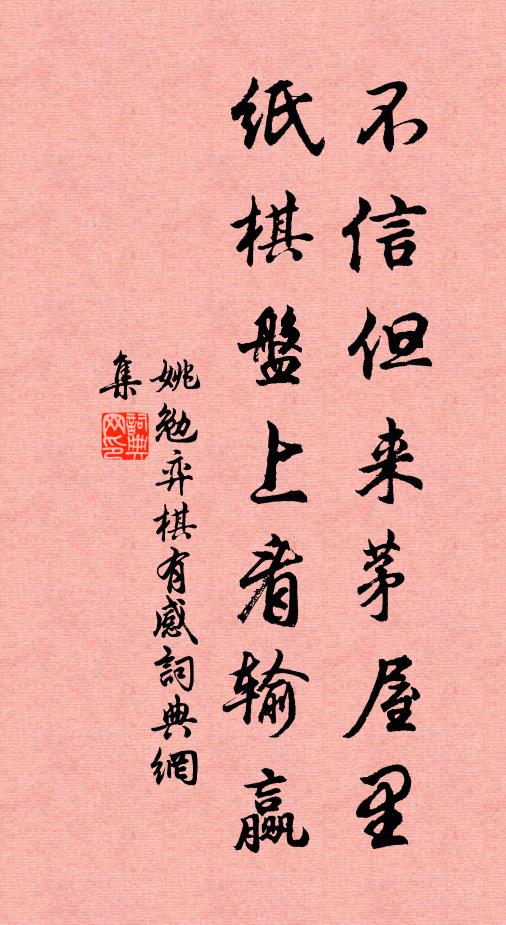 不信但来茅屋里
纸棋盤上看输赢
姚勉弈棋有感詞典網
集
詞典网印